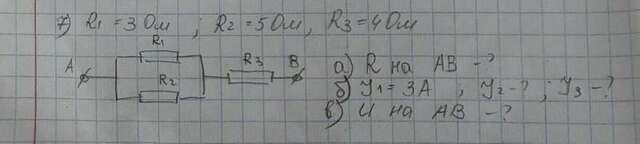 7) R1 = 3 Ом ; R2 = 5 Ом, R3 = 4 Ом
R1
A
R2
R3
B
а) R на AB - ?
б) У1 = 3А ; У2 - ? ; У3 - ?
в) U на AB - ?